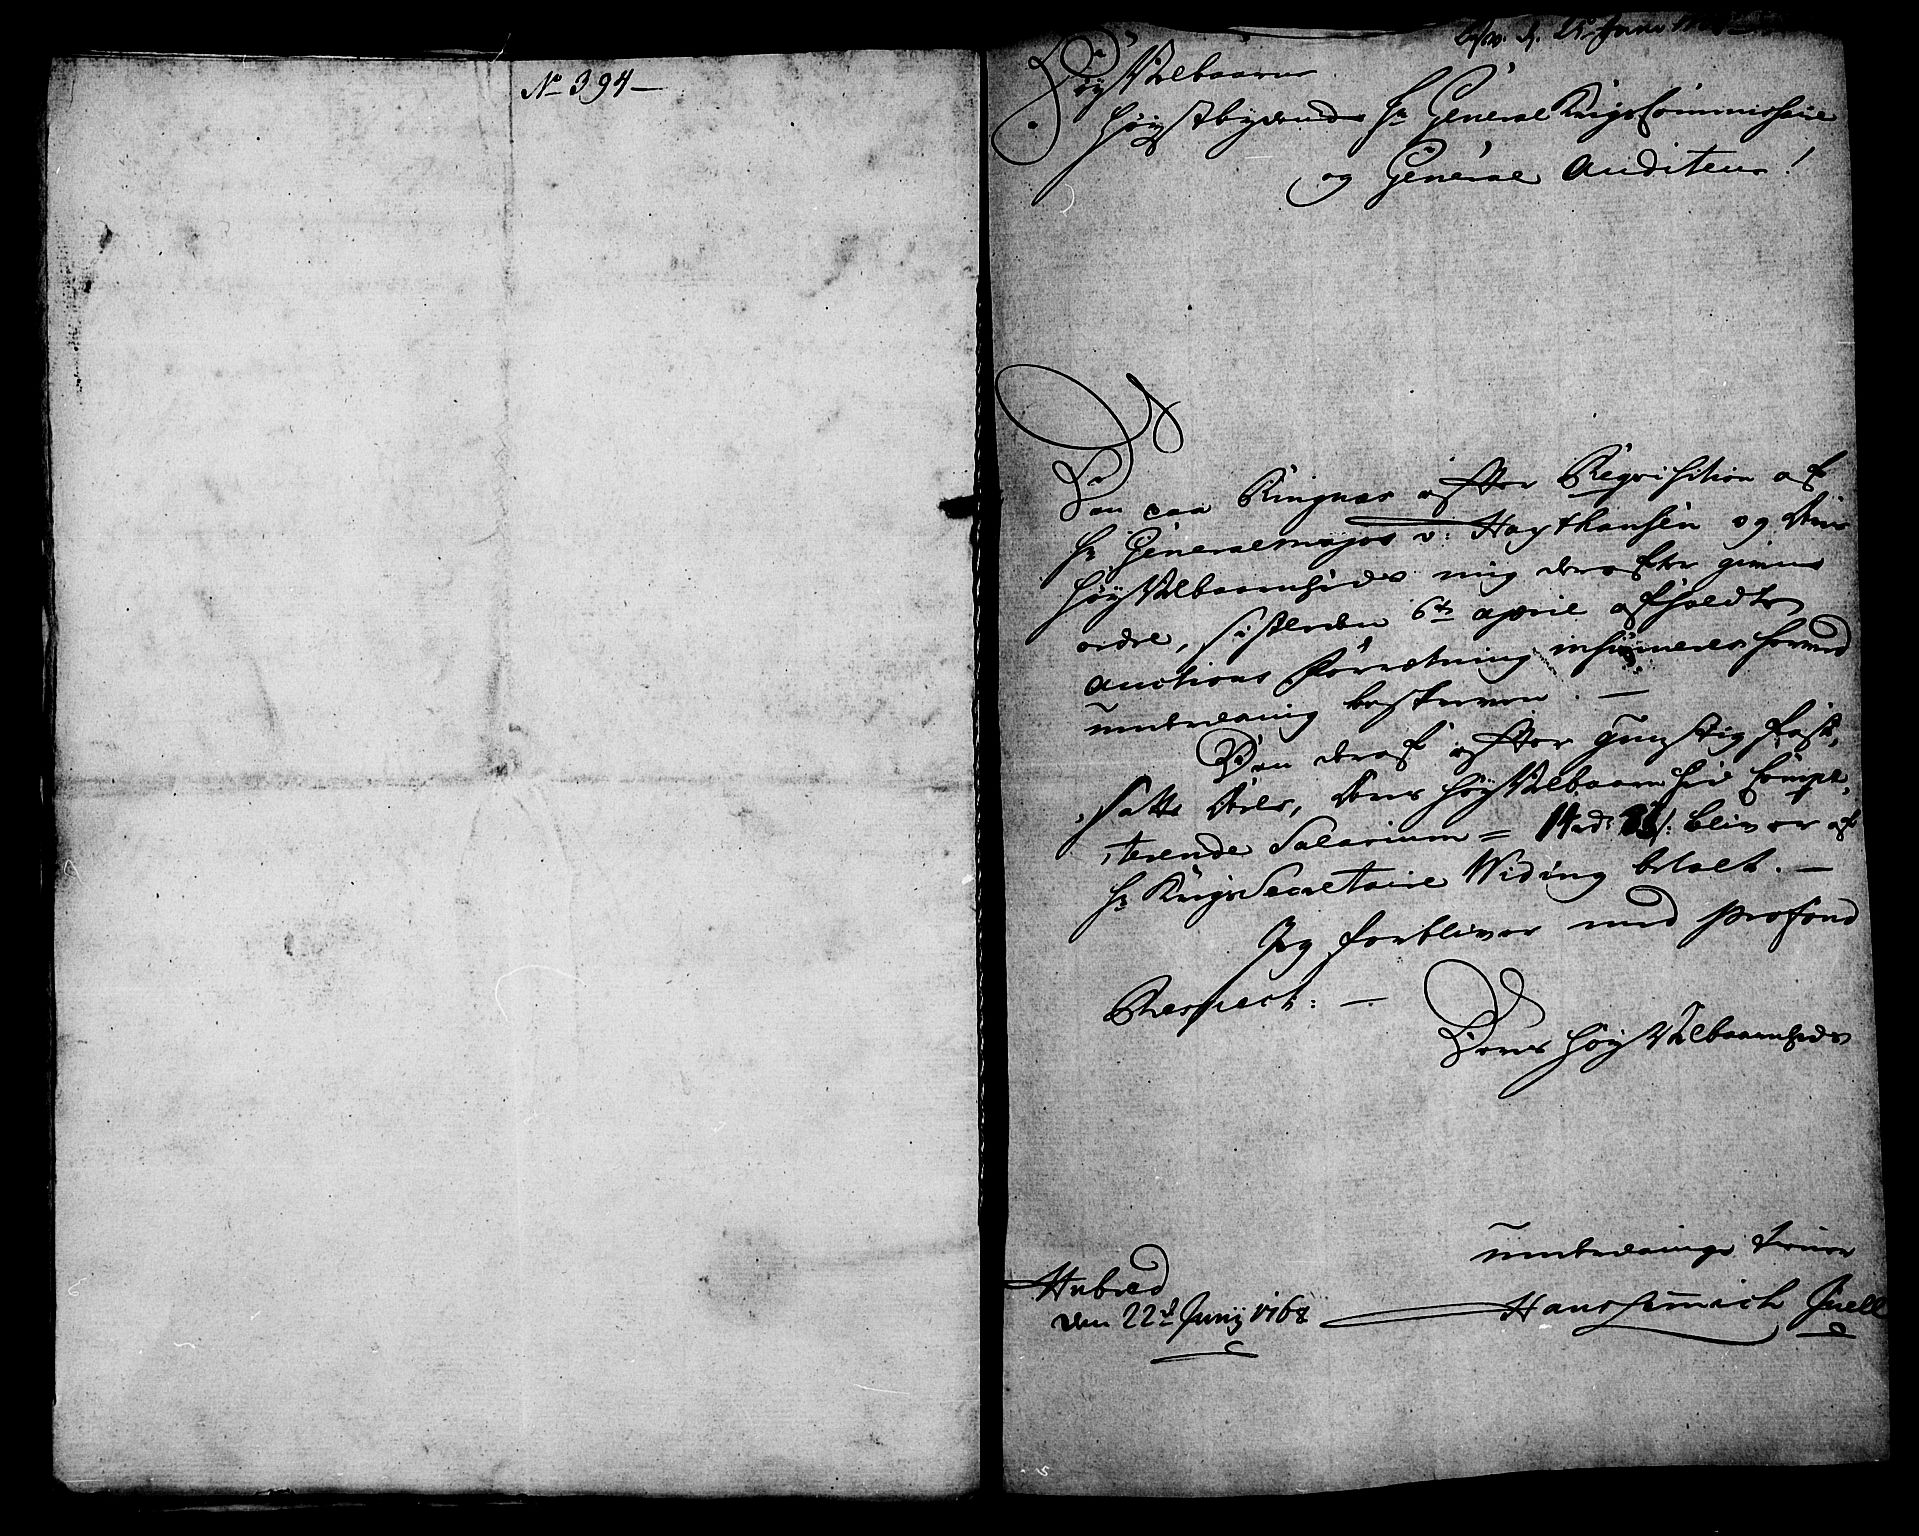 No 394
HøyVelbaarne
Høystbydende Hr General KrigsCommissaire
og General Auditeur!
Den paa Ringnæs efter Reqvisition af
Hr Generalmajor v: Haxthausen og Deres
HøyVelbaarenheds mig derefter given
ordre, sistleden 6te april afholdte
auctions Forretning insinueres herved
underdanig beskreven. —
Den deraf efter gunstig fast,
satte Deres HøyVelbaarenhed Compe,
terende Salarium = bliver af
Hr KrigsSecretaire Widing betalt. —
Jeg forbliver med profond
Respect: —
Deres HøyVelbaarenheds
underdanige tiener
Hans Henrich Juell
Hubred
den 22de Junij 1768